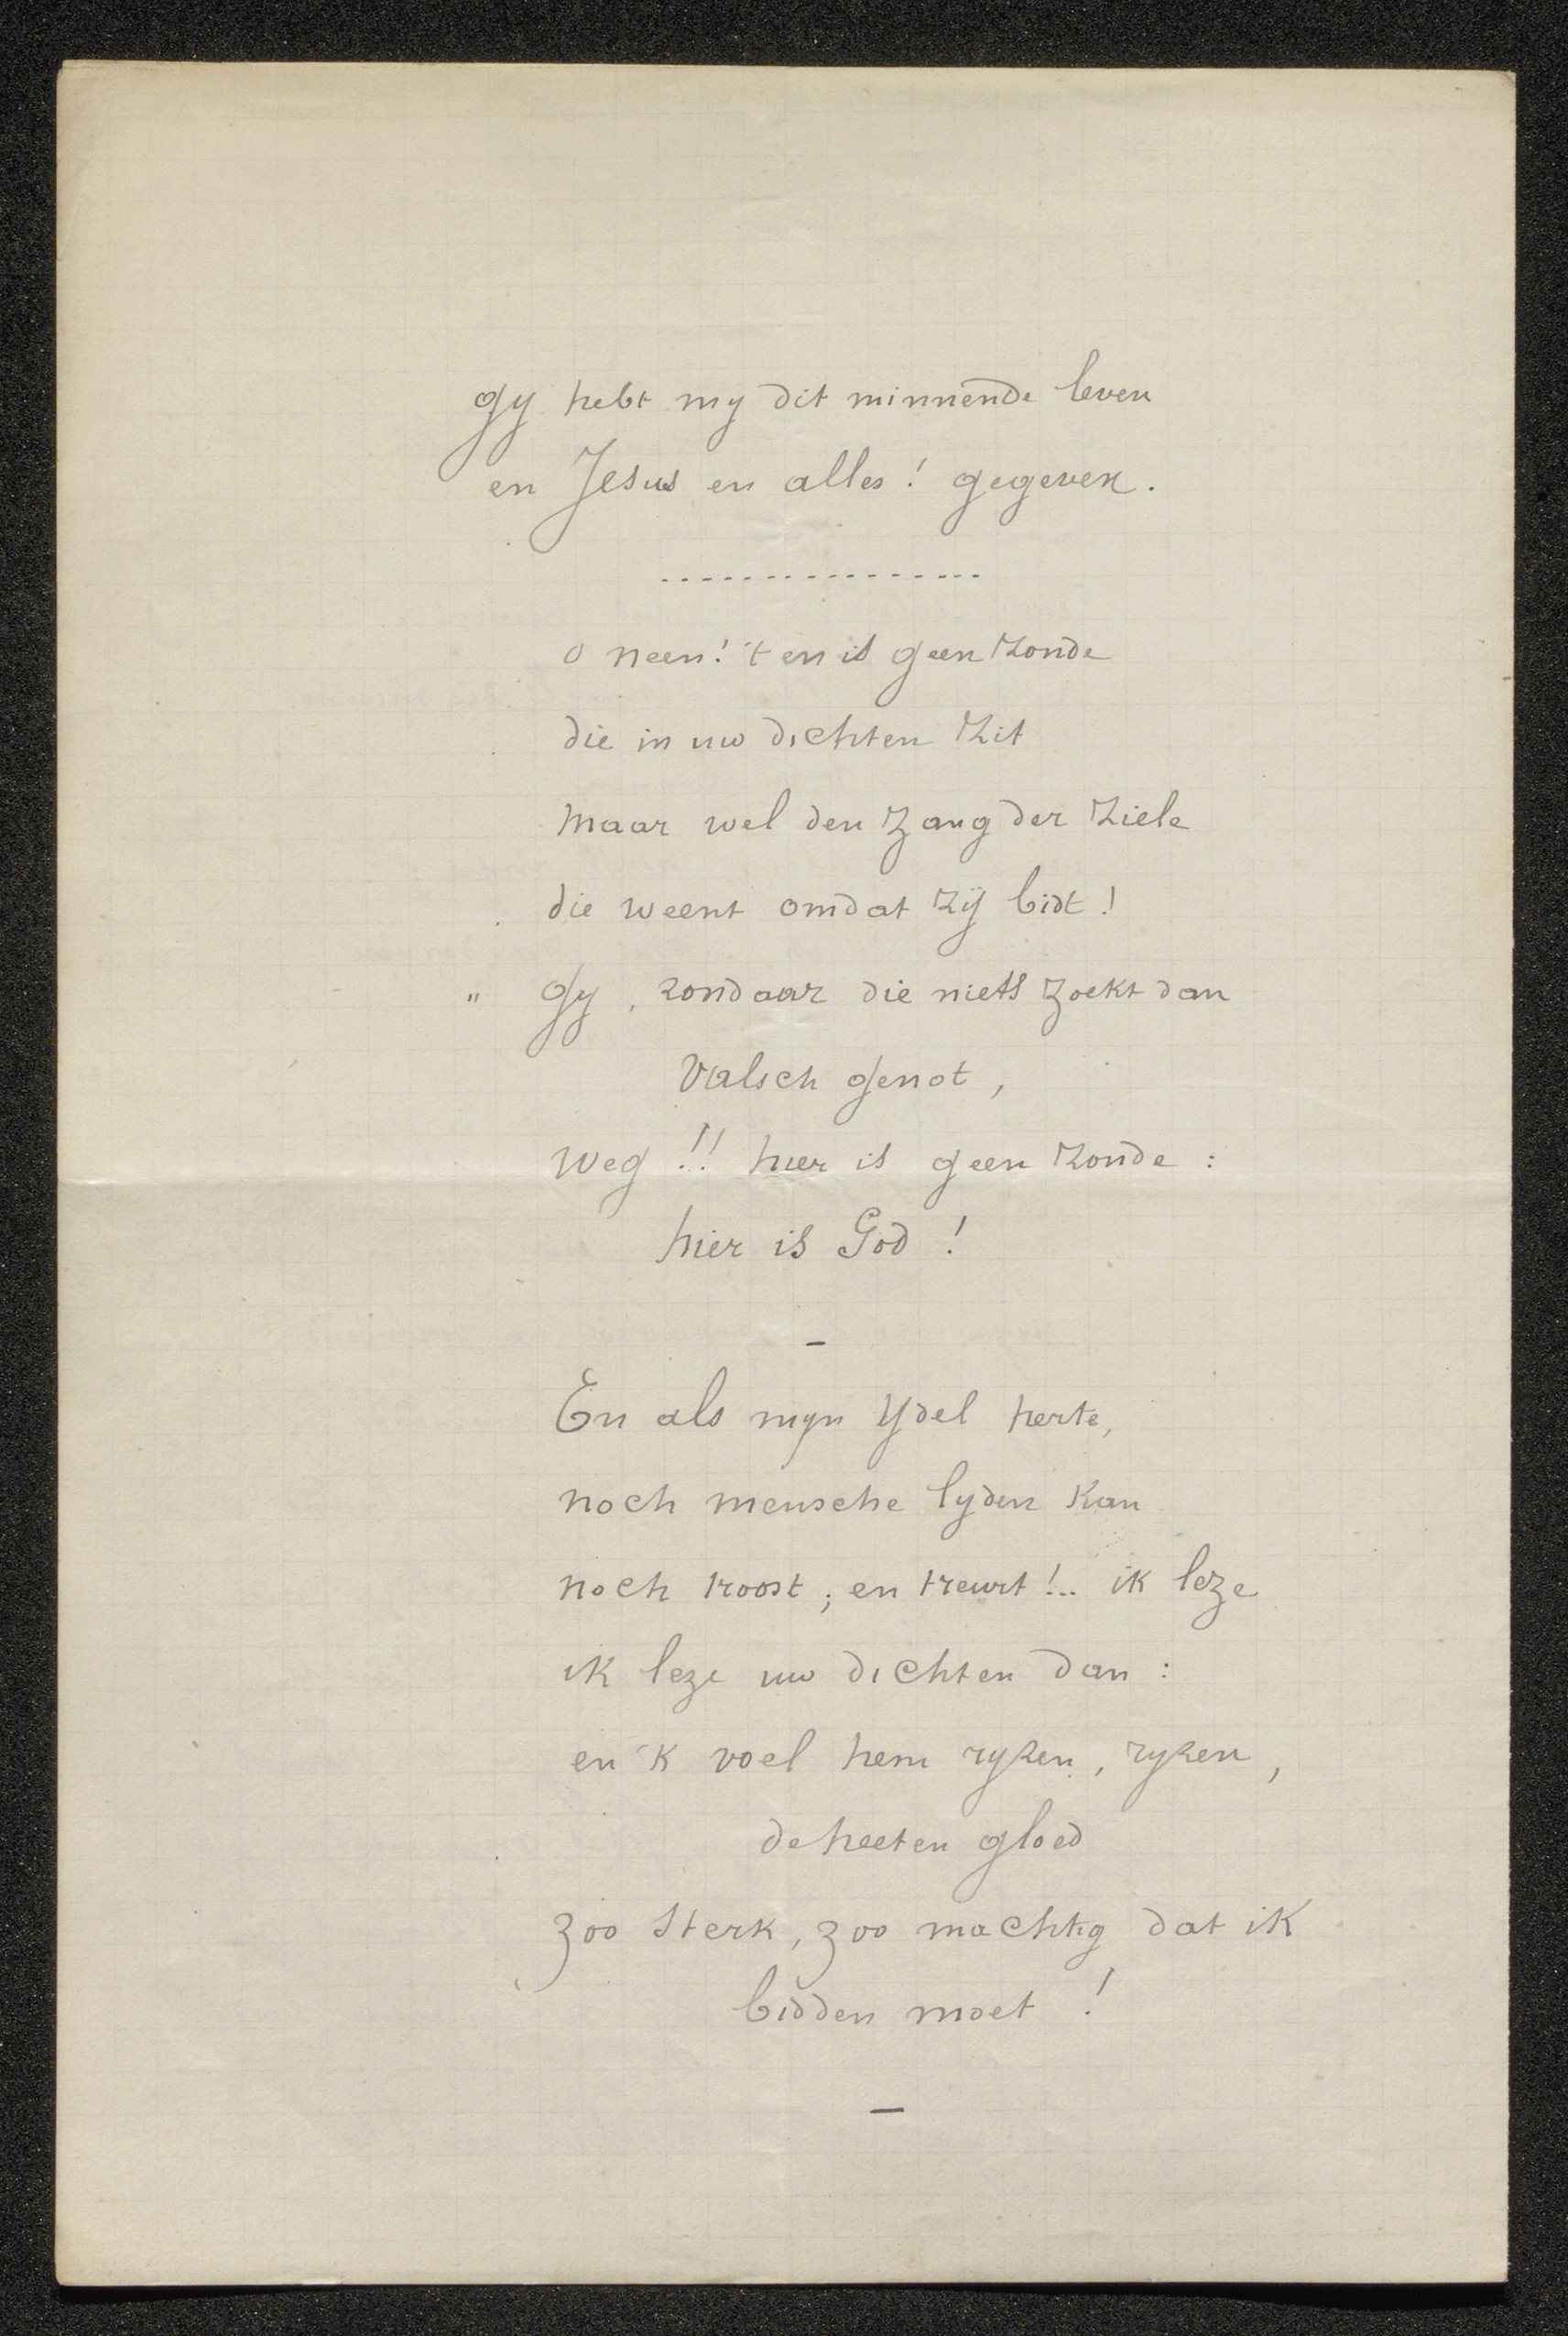 gy hebt my dit minnende leven
en Jesus en alles! gegeven.
................
o neen! 't en is geen zonde
die in uw dichten zit
maar wel den zang der ziele
die weent omdat zij bidt!
" gy, zondaar die niets zoekt dan
valsch genot,
weg!! hier is geen zonde:
hier is God!
—
En als myn ydel herte,
noch mensche lyden kan
noch troost; en treurt!.. ik leze
ik leze uw dichten dan:
en 'k voel hem ryzen, ryzen,
de heeten gloed
zoo sterk, zoo machtig dat ik
bidden moet!
—